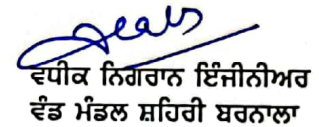 ਵਧੀਕ ਨਿਗਰਾਨ ਇੰਜੀਨੀਅਰ
ਵੰਡ ਮੰਡਲ ਸ਼ਹਿਰੀ ਬਰਨਾਲਾ